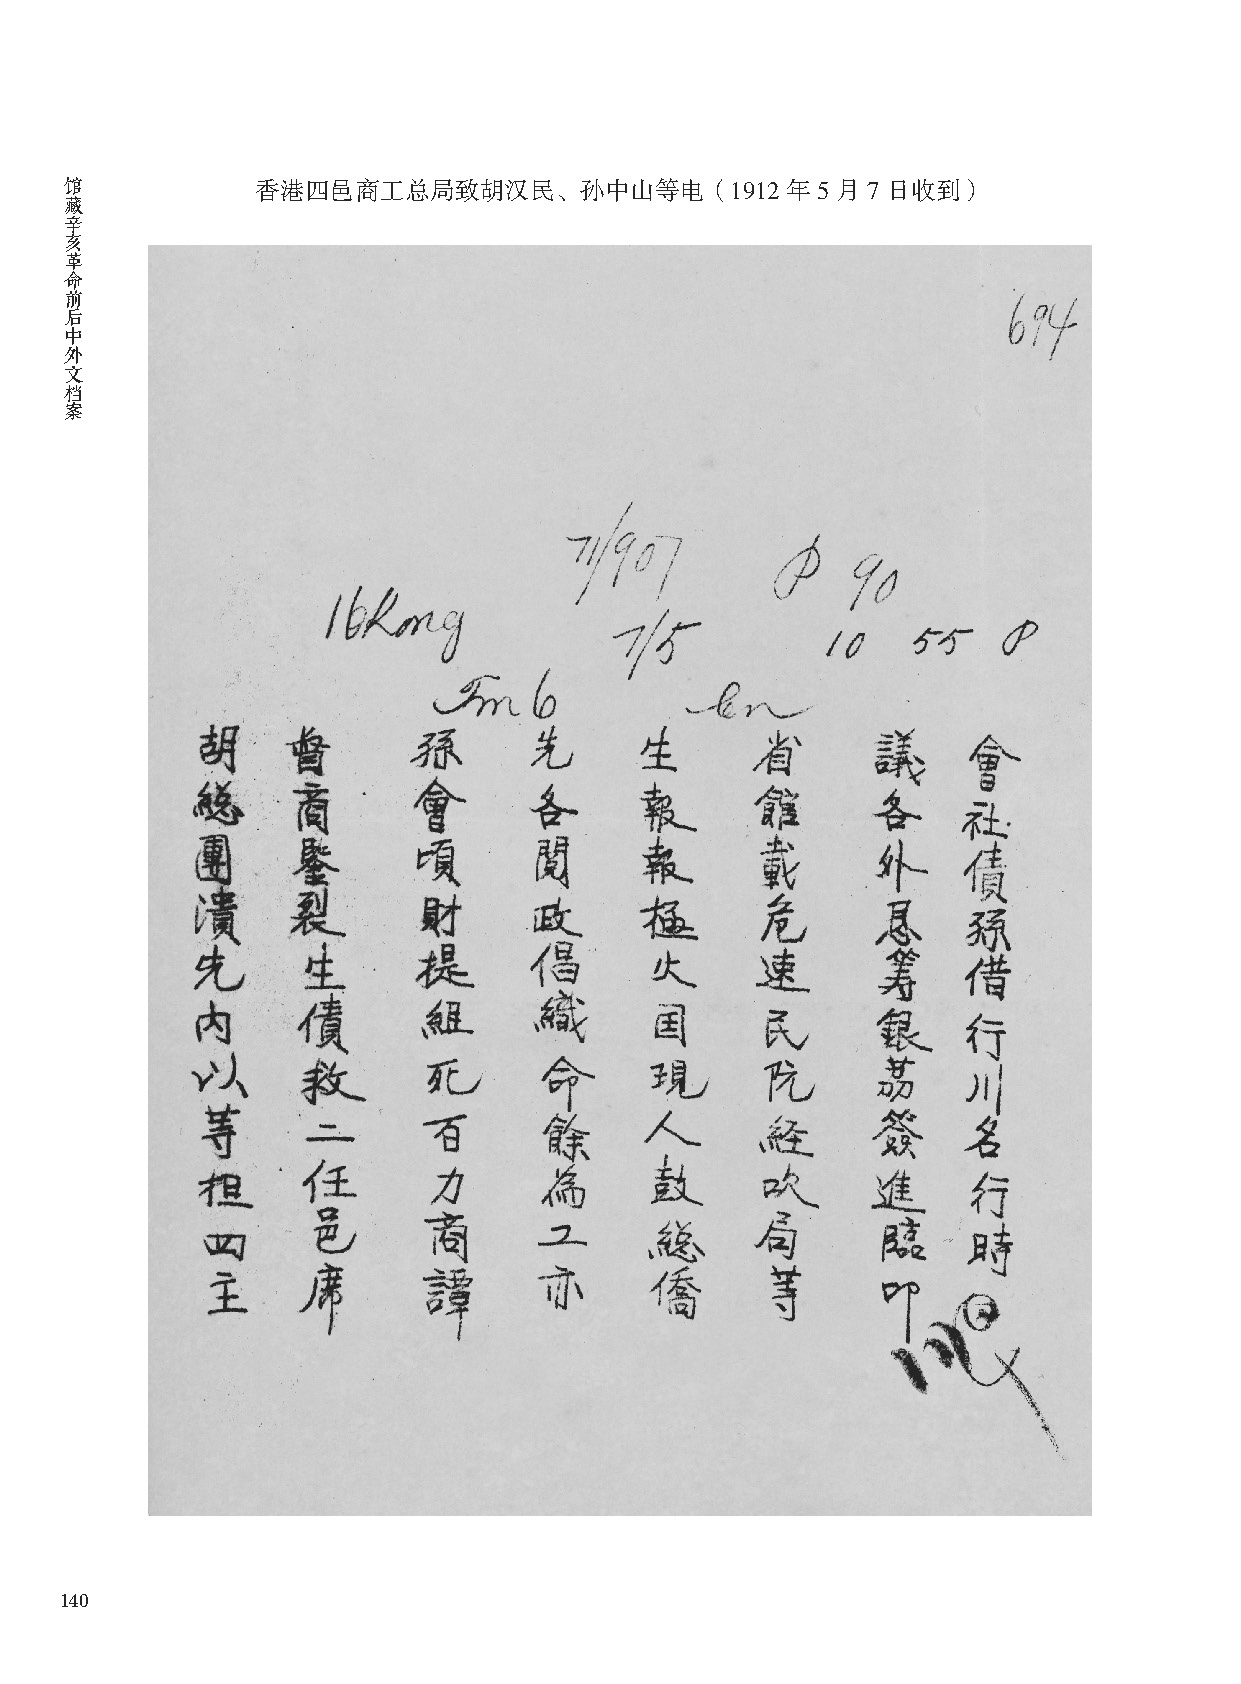 馆藏辛亥革命前后中外文档案
香港四邑商工总局致胡汉民、孙中山等电（1912 年 5 月 7 日收到）
694
90
7/5 10 55 P
胡督孫先生省議會
総商會各報館各社
團鑒頃閱報載外債
潰裂財政極危恳孫
先生提倡火速筹借
内債組織国民銀行
以救死命現阮荔川
等二百餘人経簽名
担任力為鼓吹進行
四邑商工総局臨時
主席譚亦僑等叩
140